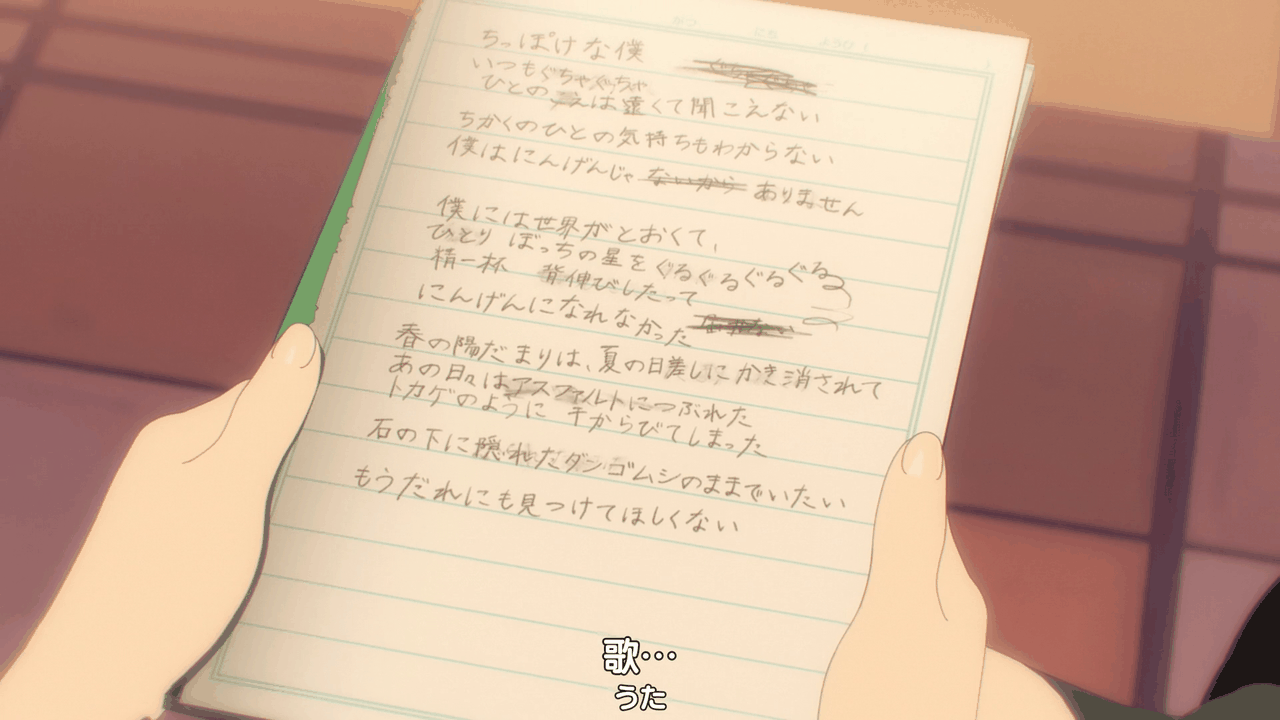 がつ にち ようび
ちっぽけな僕
いつもぐちゃぐちゃ
ひとの は遠くて聞こえない
ちかくのひとの気持ちもわからない
僕はにんげんじゃ ないから ありません
僕には世界がとおくて、
ひとりぼっちの星をぐるぐるぐるぐる
精一杯 背伸びしたって
にんげんになれなかった
春の陽だまりは、夏の日差しにかき消されて
あの日々はアスファルトにつぶれた
トカゲのように 干からびてしまった
石の下に隠れたダンゴムシのままでいたい
もうだれにも見つけてほしくない
歌…
うた